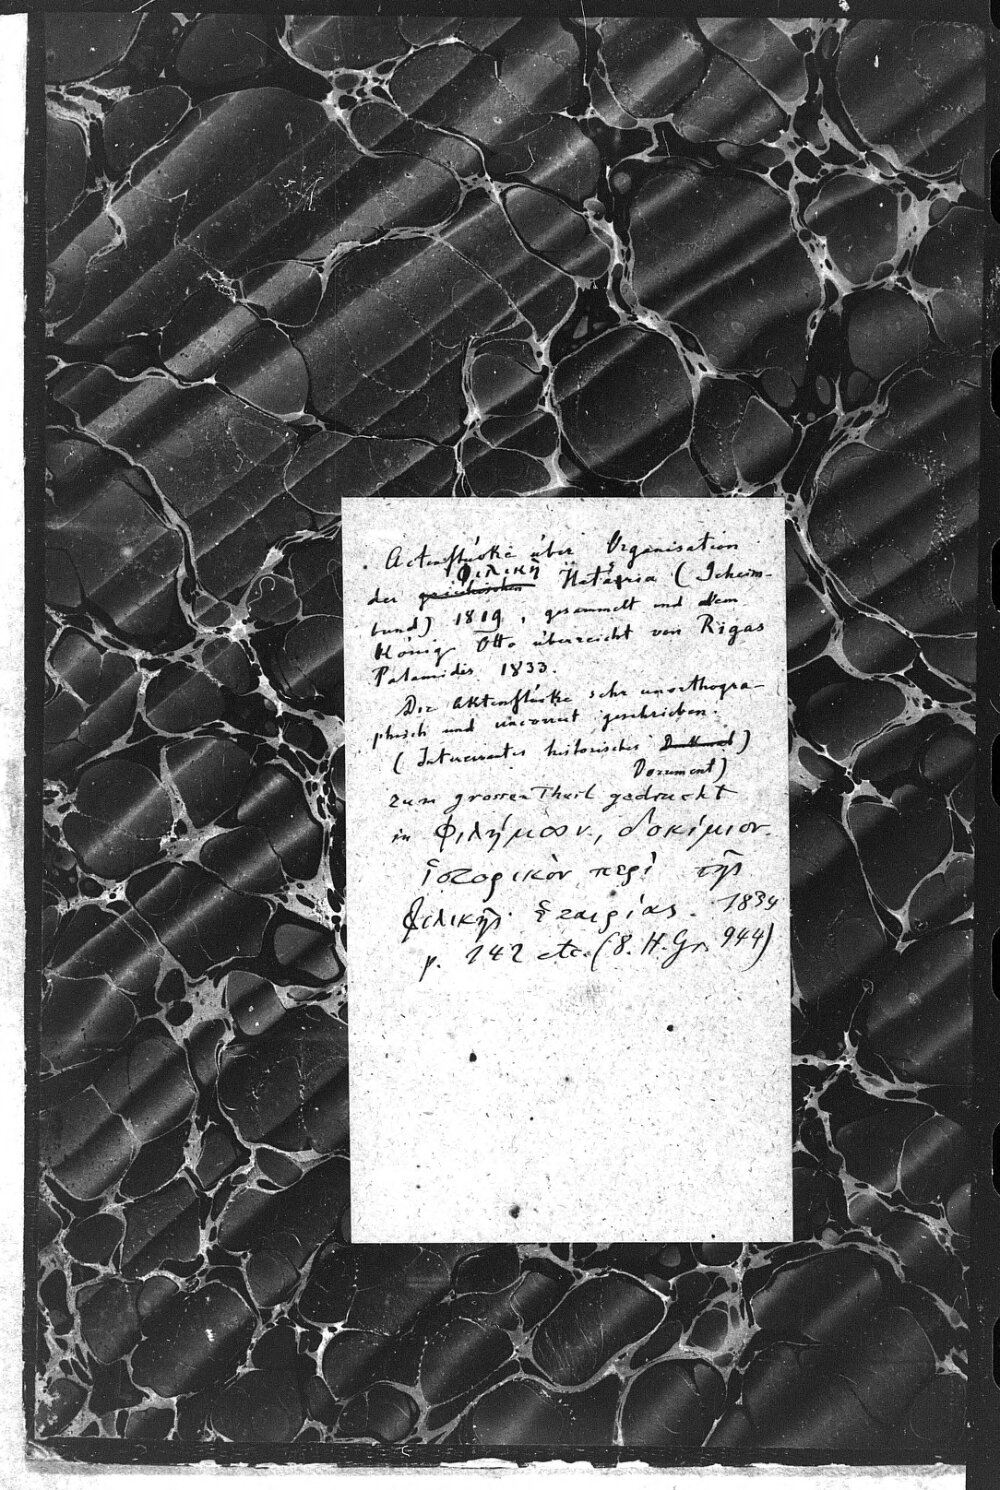 Actenstücke über Organisation
Φιλικὴ
der griechischen Hetäria (Geheim-
bund) 1819, gesammelt und dem
König Otto überreicht von Rigas
Palamidis 1833.
Die Aktenstücke sehr unorthogra-
phisch und uncorrect geschrieben.
(Interessantes historisches )
Document)
zum grossen Theil gedruckt
in Φιλήμων, δοκίμιον
ἱστορικὸν περὶ τῆς
Φιλικῆς ἑταιρίας. 1834
p. 142 etc. (8. H. Gr. 944)